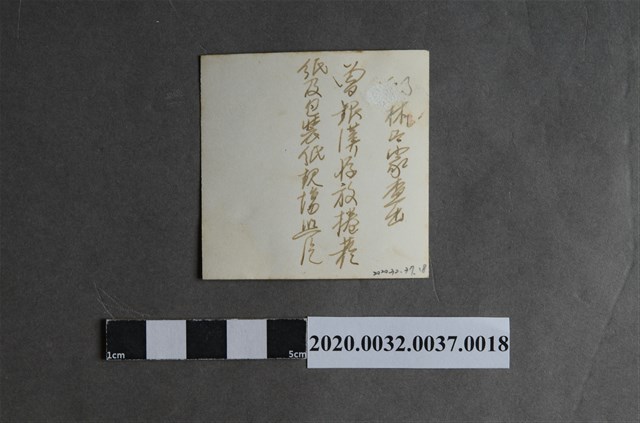 林公家查出
曾銀漢存放捲菸
紙及包裝紙現場照片
2020.32.37.18
1cm
5cm
2020.0032.0037.0018